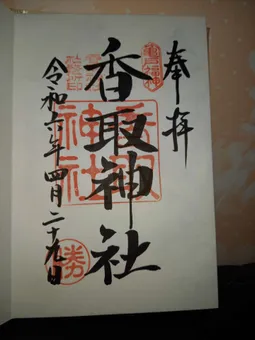 奉拝
香取神社
令和六年四月二十九日
香取
神社
勝